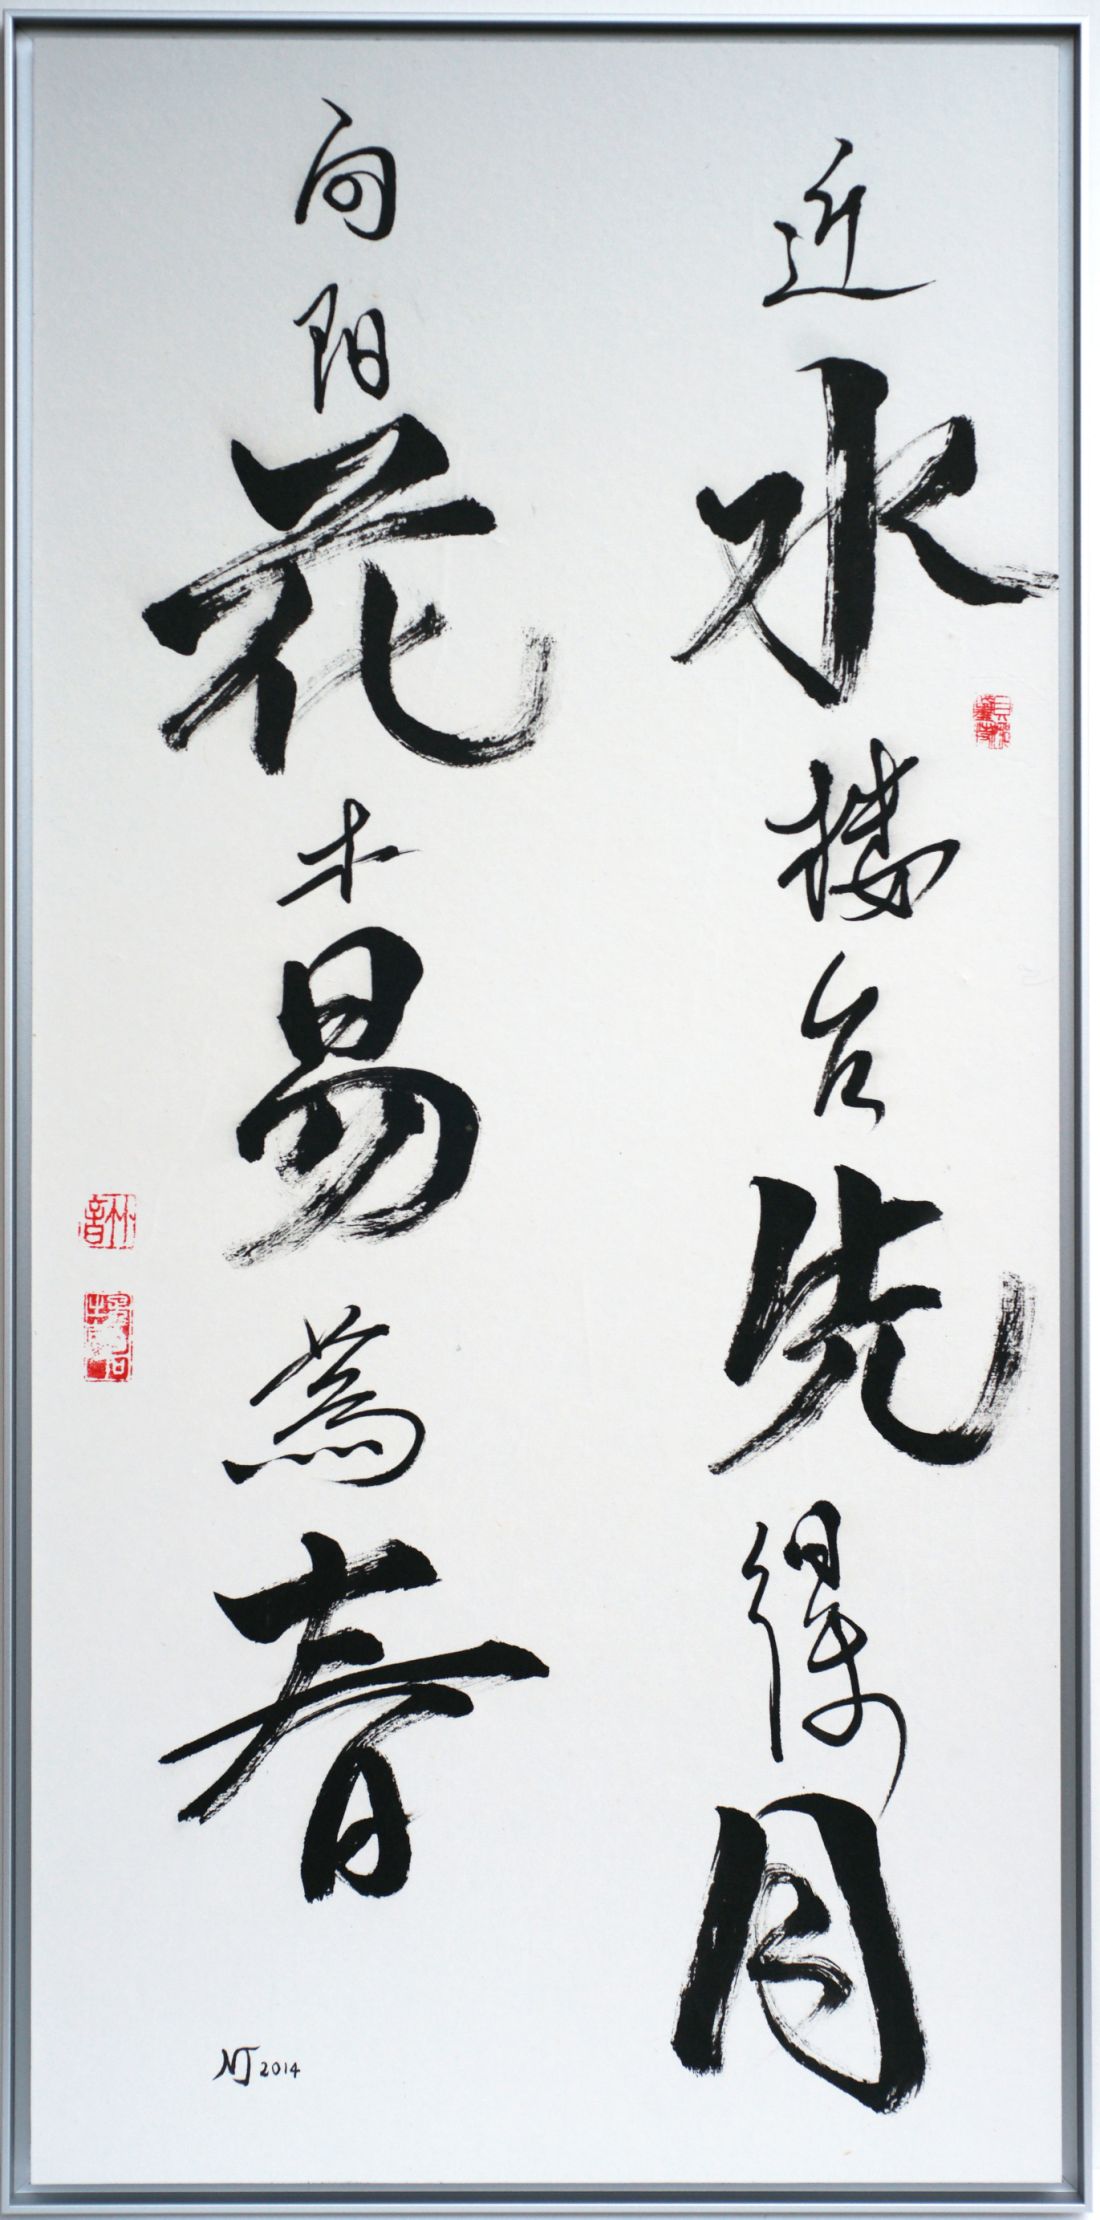 近水樓台先得月
向阳花木易為春
NJ 2014